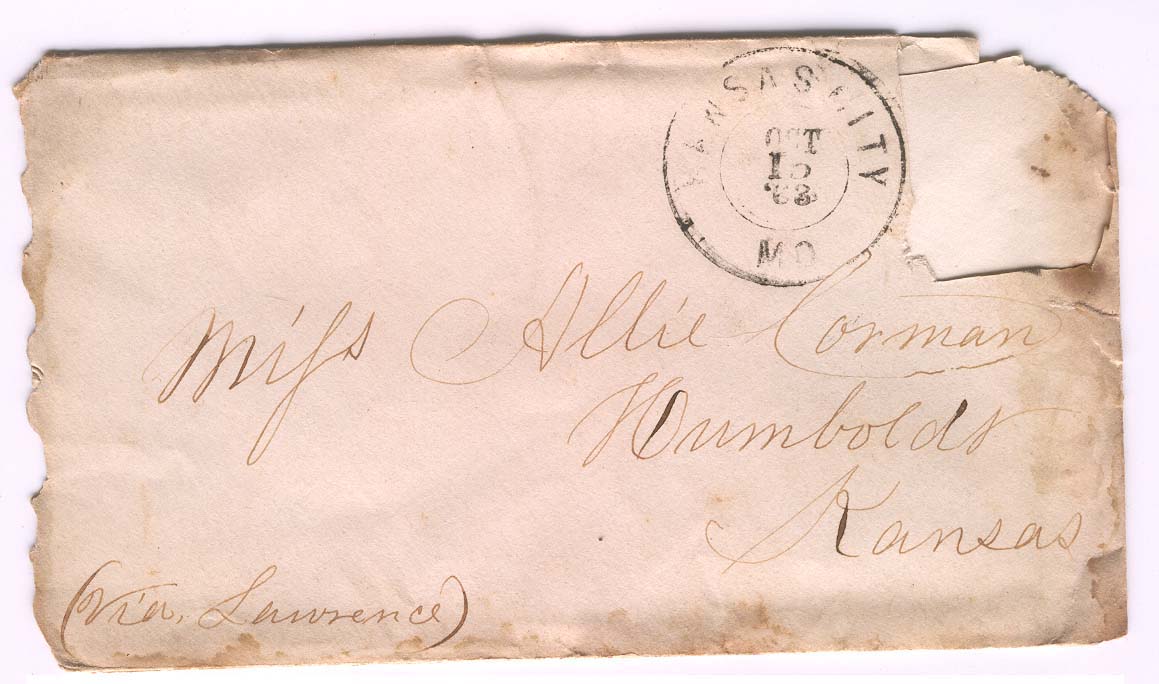 KANSAS CITY
OCT
15
'63
MO
Miſs Allie Corman
Humboldt
Kansas
(Via, Lawrence)